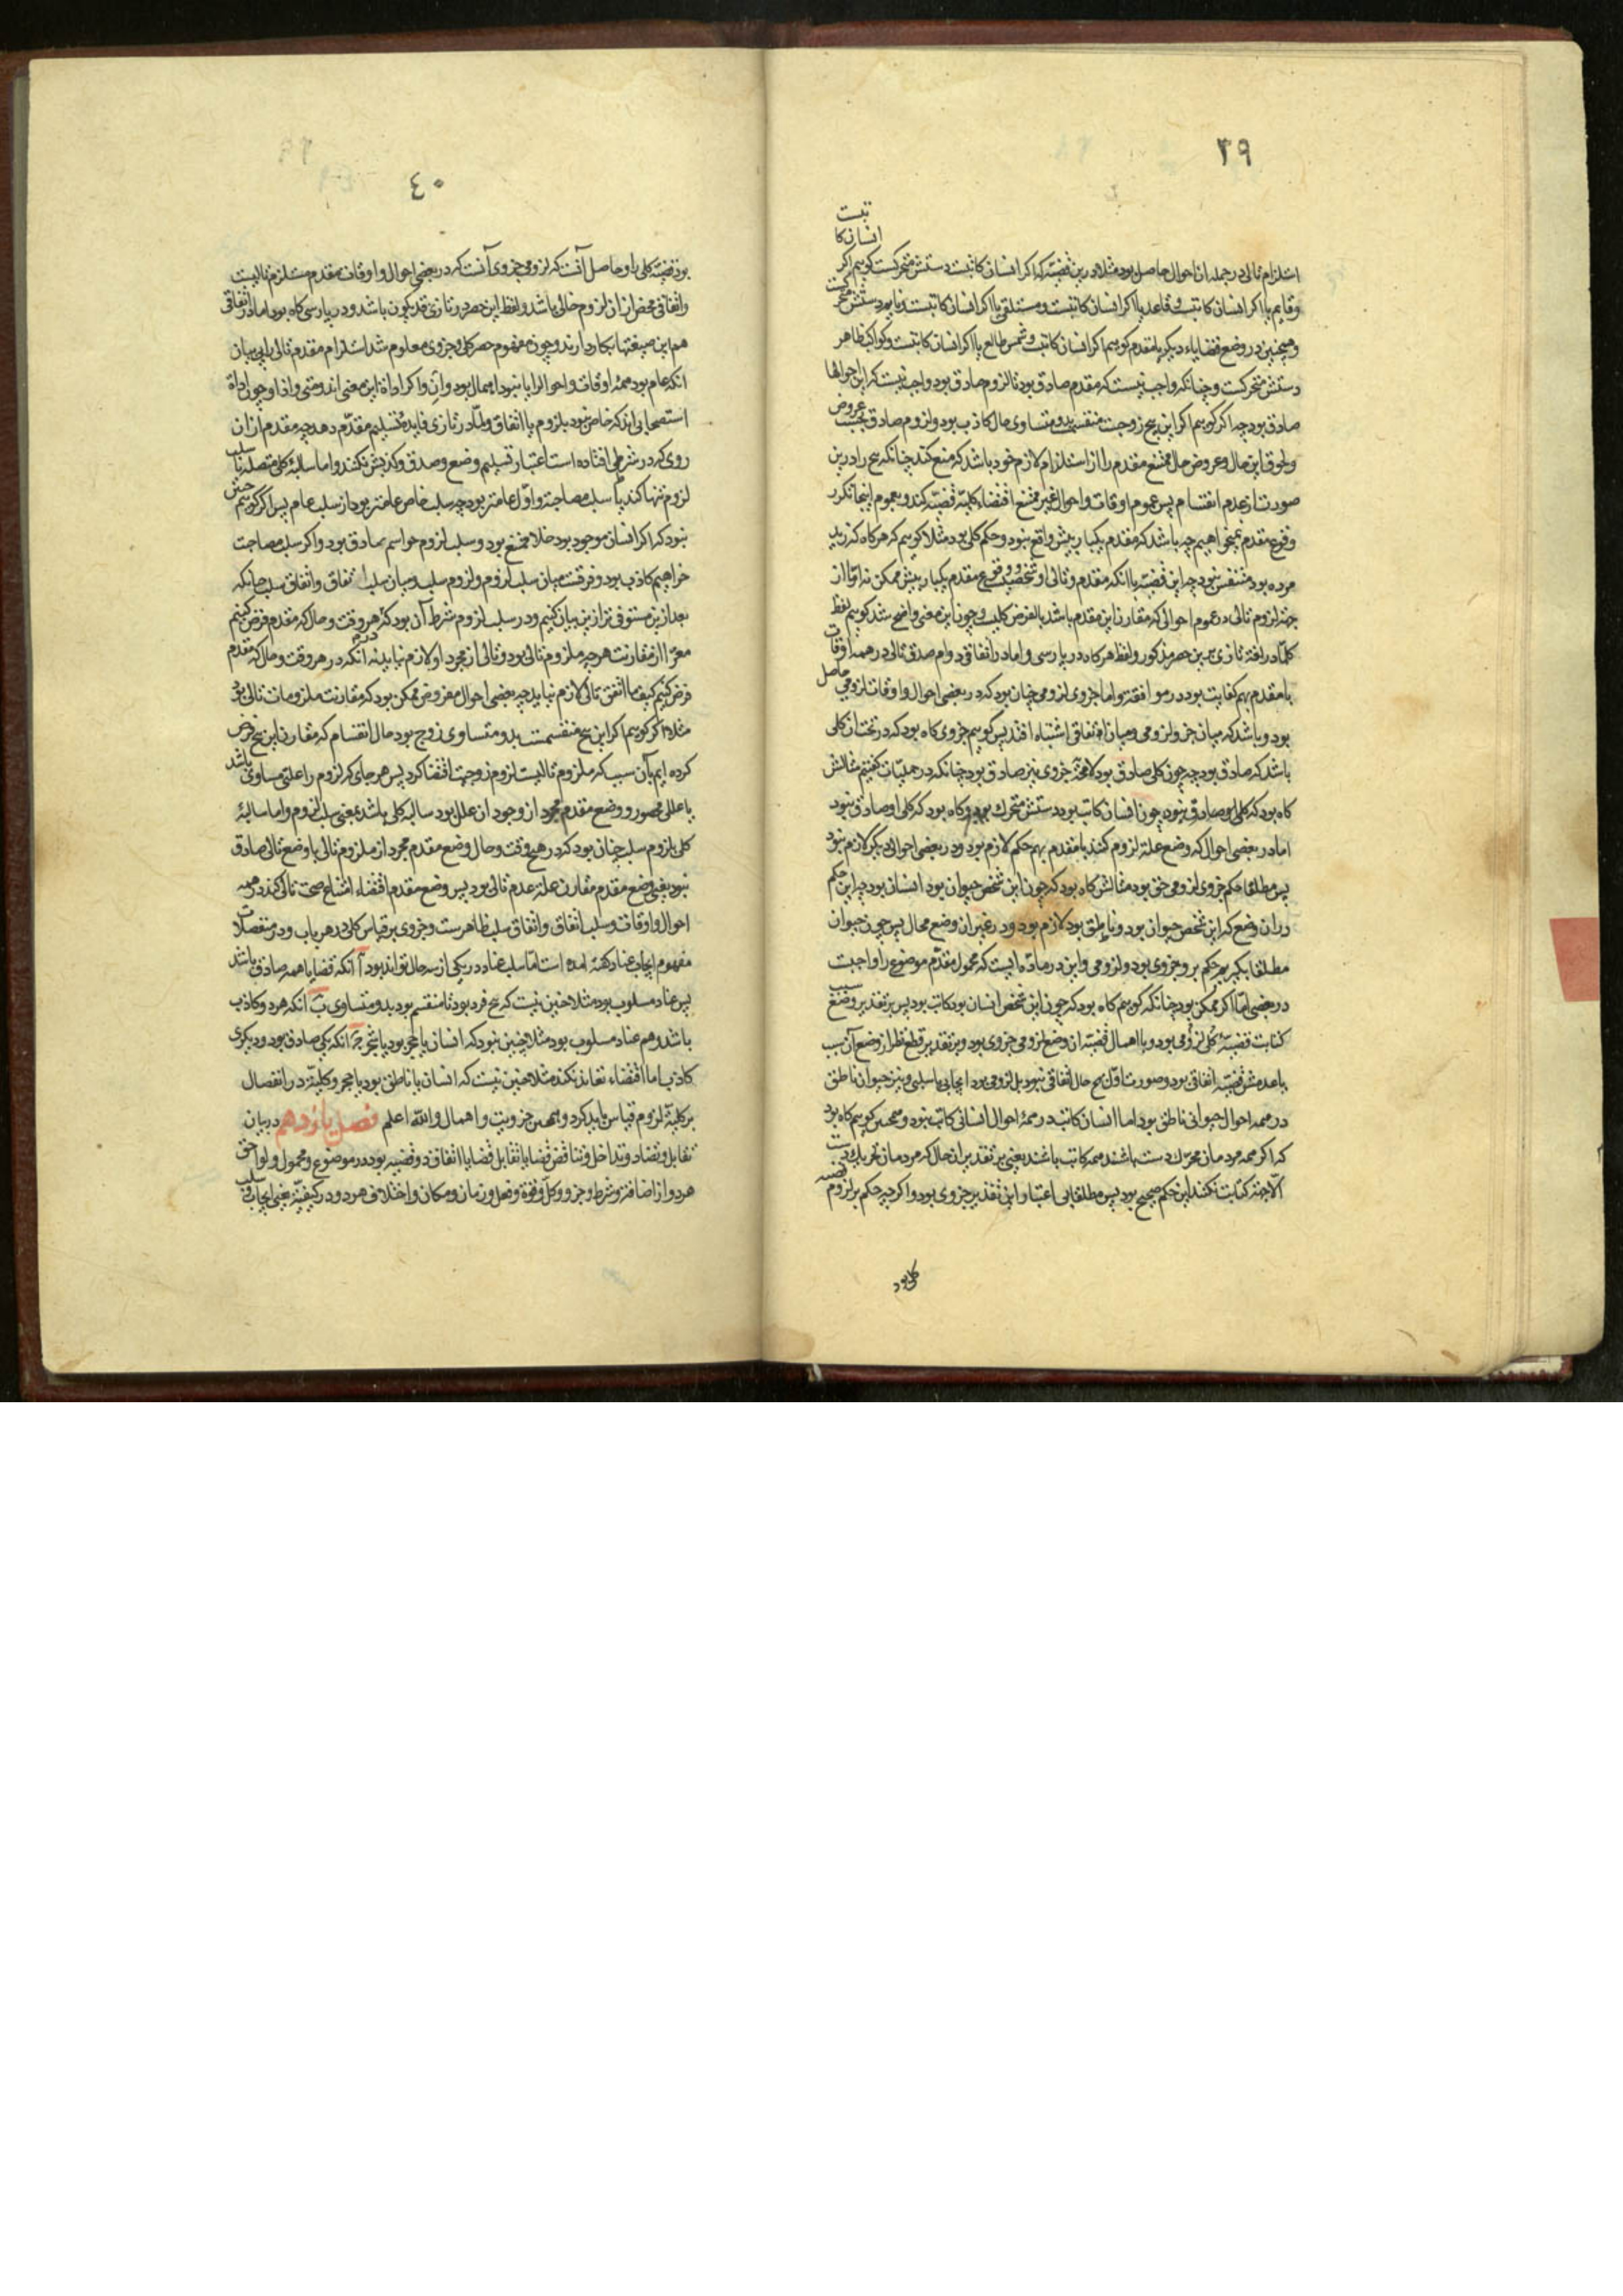 ٣٩
استلزام تالی در جمله ان احوال حاصل بود مثلا درین قضیه که اکر انسان کاتبست دستش متحرکست کوییم اکر
انسان کا
تبست
وقایم یا اکر انسان کاتبست وقاعد یا اکر انسان کاتبست ومستلقی یا اکر انسان کاتبست ونایم دستش متحرکست
وهمچنین در وضع قضایاء دیکر با مقدم کوییم اکر انسان کاتبست وشمس طالع یا اکر انسان کاتبست وکواکب ظاهر
دستش متحرکست وچنانکه واجب نیست که مقدم صادق بود تا لزوم صادق بود واجب نیست که این حوالها
صادق بود چه اکر کوییم اکر این پنج زوجست منقسمست بدو متساوی حال کاذب بود ولزوم صادق بحسب عروض
ولحوق این حال وعروض حال ممتنع مقدم را از استلزام لازم خود باشد که منع کند چنانکه پنج را درین
صورت از عدم انقسام پس عموم اوقات واحوال غیر ممتنع اقتضاء کلیة قضیه کند وبعموم اینجا تکرر
وقوع مقدم نمیخواهیم چه باشد که مقدم یکبار بیش واقع نبود وحکم کلی بود مثلا کوییم که هرکاه که زید
مرده بود متنفس نبود چه این قضیه با انکه مقدم وتالی او شخصیست ووقوع مقدم یکبار بیش ممکن نه اما از
جهة لزوم تالی در عموم احوالی که مقارن این مقدم باشد بالفرض کلیست وچون این معنی واضح شد کوییم لفظ
کلما در لغة تازی برین حصر مذکور ولفظ هرکاه در پارسی واما در اتفاقی دوام صدق تالی در همه اوقات
با مقدم بهم کفایت بود در موافقة واما جزوی لزومی چنان بود که در بعضی احوال واوقات لزومی حاصل
بود وباشد که میان جزو لزومی ومیان اتفاقی اشتباه افتد پس کوییم جزوی کاه بود که در تحت ان کلی
باشد که صادق بود چه چون کلی صادق بود لامحة جزوی نیز صادق بود چنانکه در حملیات کفتیم مثالش
کاه بود که کلی او صادق نبود چون انسان کاتب بود دستش متحرک بود وکاه بود که کلی او صادق نبود
اما در بعضی احوال که وضع علة لزوم کنند با مقدم بهم حکم لازم بود ودر بعضی احوال دیکر لازم نبود
پس مطلقا حکم جزوی لزومی حق بود مثالش کاه بود که چون این شخص حیوان بود انسان بود چه این حکم
دران وضع که این شخص حیوان بود وناطق بود لازم بود ودر غیر ان وضع محال پس چون حیوان
مطلقا بکیریم حکم برو جزوی بود ولزومی واین در ماده ایست که محمول مقدم موضوع را واجبست
در بعضی اما اکر ممکن بود چنانکه کوییم کاه بود که چون این شخص انسان بود کاتب بود پس بر تقدیر وضع سبب
کتابت قضیه کلی لزومی بود وبا اهمال قضیه ان وضع لزومی جزوی بود وبر تقدیر قطع نظر از وضع آن سبب
یا عدمش قضیه اتفاقی بود وصورت اول هیچ حال اتفاقی نبود بل لزومی بود ایجابی یا سلبی ونیز حیوان ناطق
در همه احوال حیوانی ناطق بود اما انسان کاتب در همة احوال انسانی کاتب نبود وهمچنین کوییم کاه بود
که اکر همه مردمان محرک دست باشند همه کاتب باشند یعنی بر تقدیر ان حال که مردمان تحریک دست
الا جهة کتابت نکنند این حکم صحیح بود پس مطلقا بی اعتبار این تقدیر جزوی بود واکر چه حکم بر لزوم قضیه
کلی بود
٤٠
بود قضیه کلی را وحاصل آنست که لزومی جزوی آنست که در بعضی احوال واوقات مقدم مستلزم تالیست
واتفاقی محض از ان لزوم خالی باشد ولفظ این حصر در تازی قد یکون باشد ودر پارسی کاه بود اما در اتفاقی
هم این صیغتها بکار دارند وچون مفهوم حصر کلی وجزوی معلوم شد استلزام مقدم تالی را بی بیان
انکه عام بود همة اوقات واحوال را یا نبود اهمال بود وان واکر اداة این معنی اند ومتی واذا وچون اداة
استصحابی اند که خاص نبود بلزوم یا اتفاق ولما در تازی فایده تسلیم مقدم دهد چه مقدم از ان
روی که در شرطی افتاده است اعتبار تسلیم وضع وصدق وکذبش نکنند واما سالبة کلی متصله یا سلب
لزوم تنها کند یا سلب مصاحبة واول عامتر بود چه سلب خاص عامتر بود از سلب عام پس اکر کوییم چنین
نبود که اکر انسان موجود بود خلا ممتنع بود وسلب لزوم خواسم صادق بود واکر سلب مصاحبت
خواهیم کاذب بود وفرقست میان سلب لزوم ولزوم سلب ومیان سلب اتفاق واتفاق سلب چنانکه
بعد ازین مستوفی تر ازین بیان کنیم ودر سلب لزوم شرط آن بود که هر وقت وحال که مقدم فرض کنیم
معرا از مقارنت هر چه ملزوم تالی بود وتالی از مجرد او لازم نیاید نه انکه در هر وقت وحال که مقدم
فرض کنیم کیف ما اتفق تالی لازم نیاید چه بعضی احوال مفروض ممکن بود که مقارنت ملزومات تالی بود
مثلا اکر کوییم اکر این پنج منقسمست بدو متساوی زوج بود حال انقسام که مقارن این پنج فرض
کرده ایم بآن سبب که ملزوم تالیست لزوم زوجیت اقتضا کرد پس هر جای که لزوم را علتی مساوی باشد
یا عللی محصور ووضع مقدم مجرد از وجود ان علل بود سالبه کلی باشد بمعنی سلب لزوم واما سالبة
کلی بلزوم سلب چنان بود که در هیچ وقت وحال وضع مقدم مجرد از ملزوم تالی با وضع تالی صادق
نبود یعنی وضع مقدم مقارن علة عدم تالی بود پس وضع مقدم اقتضاء امتناع صحت تالی کند در همه
احوال واوقات وسلب اتفاق واتفاق سلب ظاهرست وجزوی بر قیاس کلی در هر باب ودر منفصلات
مفهوم ایجاب عناد کفته امده است اما سلب عناد در یکی از سه حال تواند بود آ انکه قضایا همه صادق باشد
پس عناد مسلوب بود مثلا چنین نیست که پنج فرد بود تا منقسم بود بدو متساوی ب انکه هر دو کاذب
باشد وهم عناد مسلوب بود مثلا چنین نبود که انسان یا حجر بود یا شجر ج انکه یکی صادق بود ودیکری
کاذب اما اقتضاء تعاند نکند مثلا چنین نیست که انسان یا ناطق بود یا حجر وکلیة در انفصال
بر کلیة لزوم قیاس باید کرد وهمچنین جزویت واهمال والله اعلم فصل یازدهم در بیان
تقابل وتضاد وتداخل وتناقض قضایا تقابل قضایا اتفاق دو قضیه بود در موضوع ومحمول ولواحق
هر دو از اضافت وشرط وجزو وکل وقوة وفعل وزمان ومکان واختلاف هر دو در کیفیة یعنی ایجاب وسلب